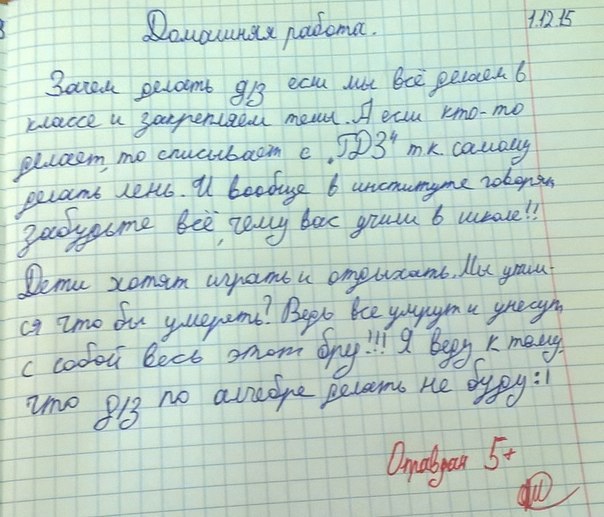 Домашняя работа.
1.12.15
Зачем делать д/з если мы всё делаем в
классе и закрепляем темы. А если кто-то
делает, то списывает с „ГДЗ" т.к. самому
делать лень. И вообще в институте говорят,
забудьте всё, чему вас учили в школе!!
Дети хотят играть и отдыхать. Мы учим-
ся что бы умереть? Ведь все умрут и унесут
с собой весь этот бру!!! Я веду к тому,
что д/з по алгебре делать не буду:|
Оправдан 5+